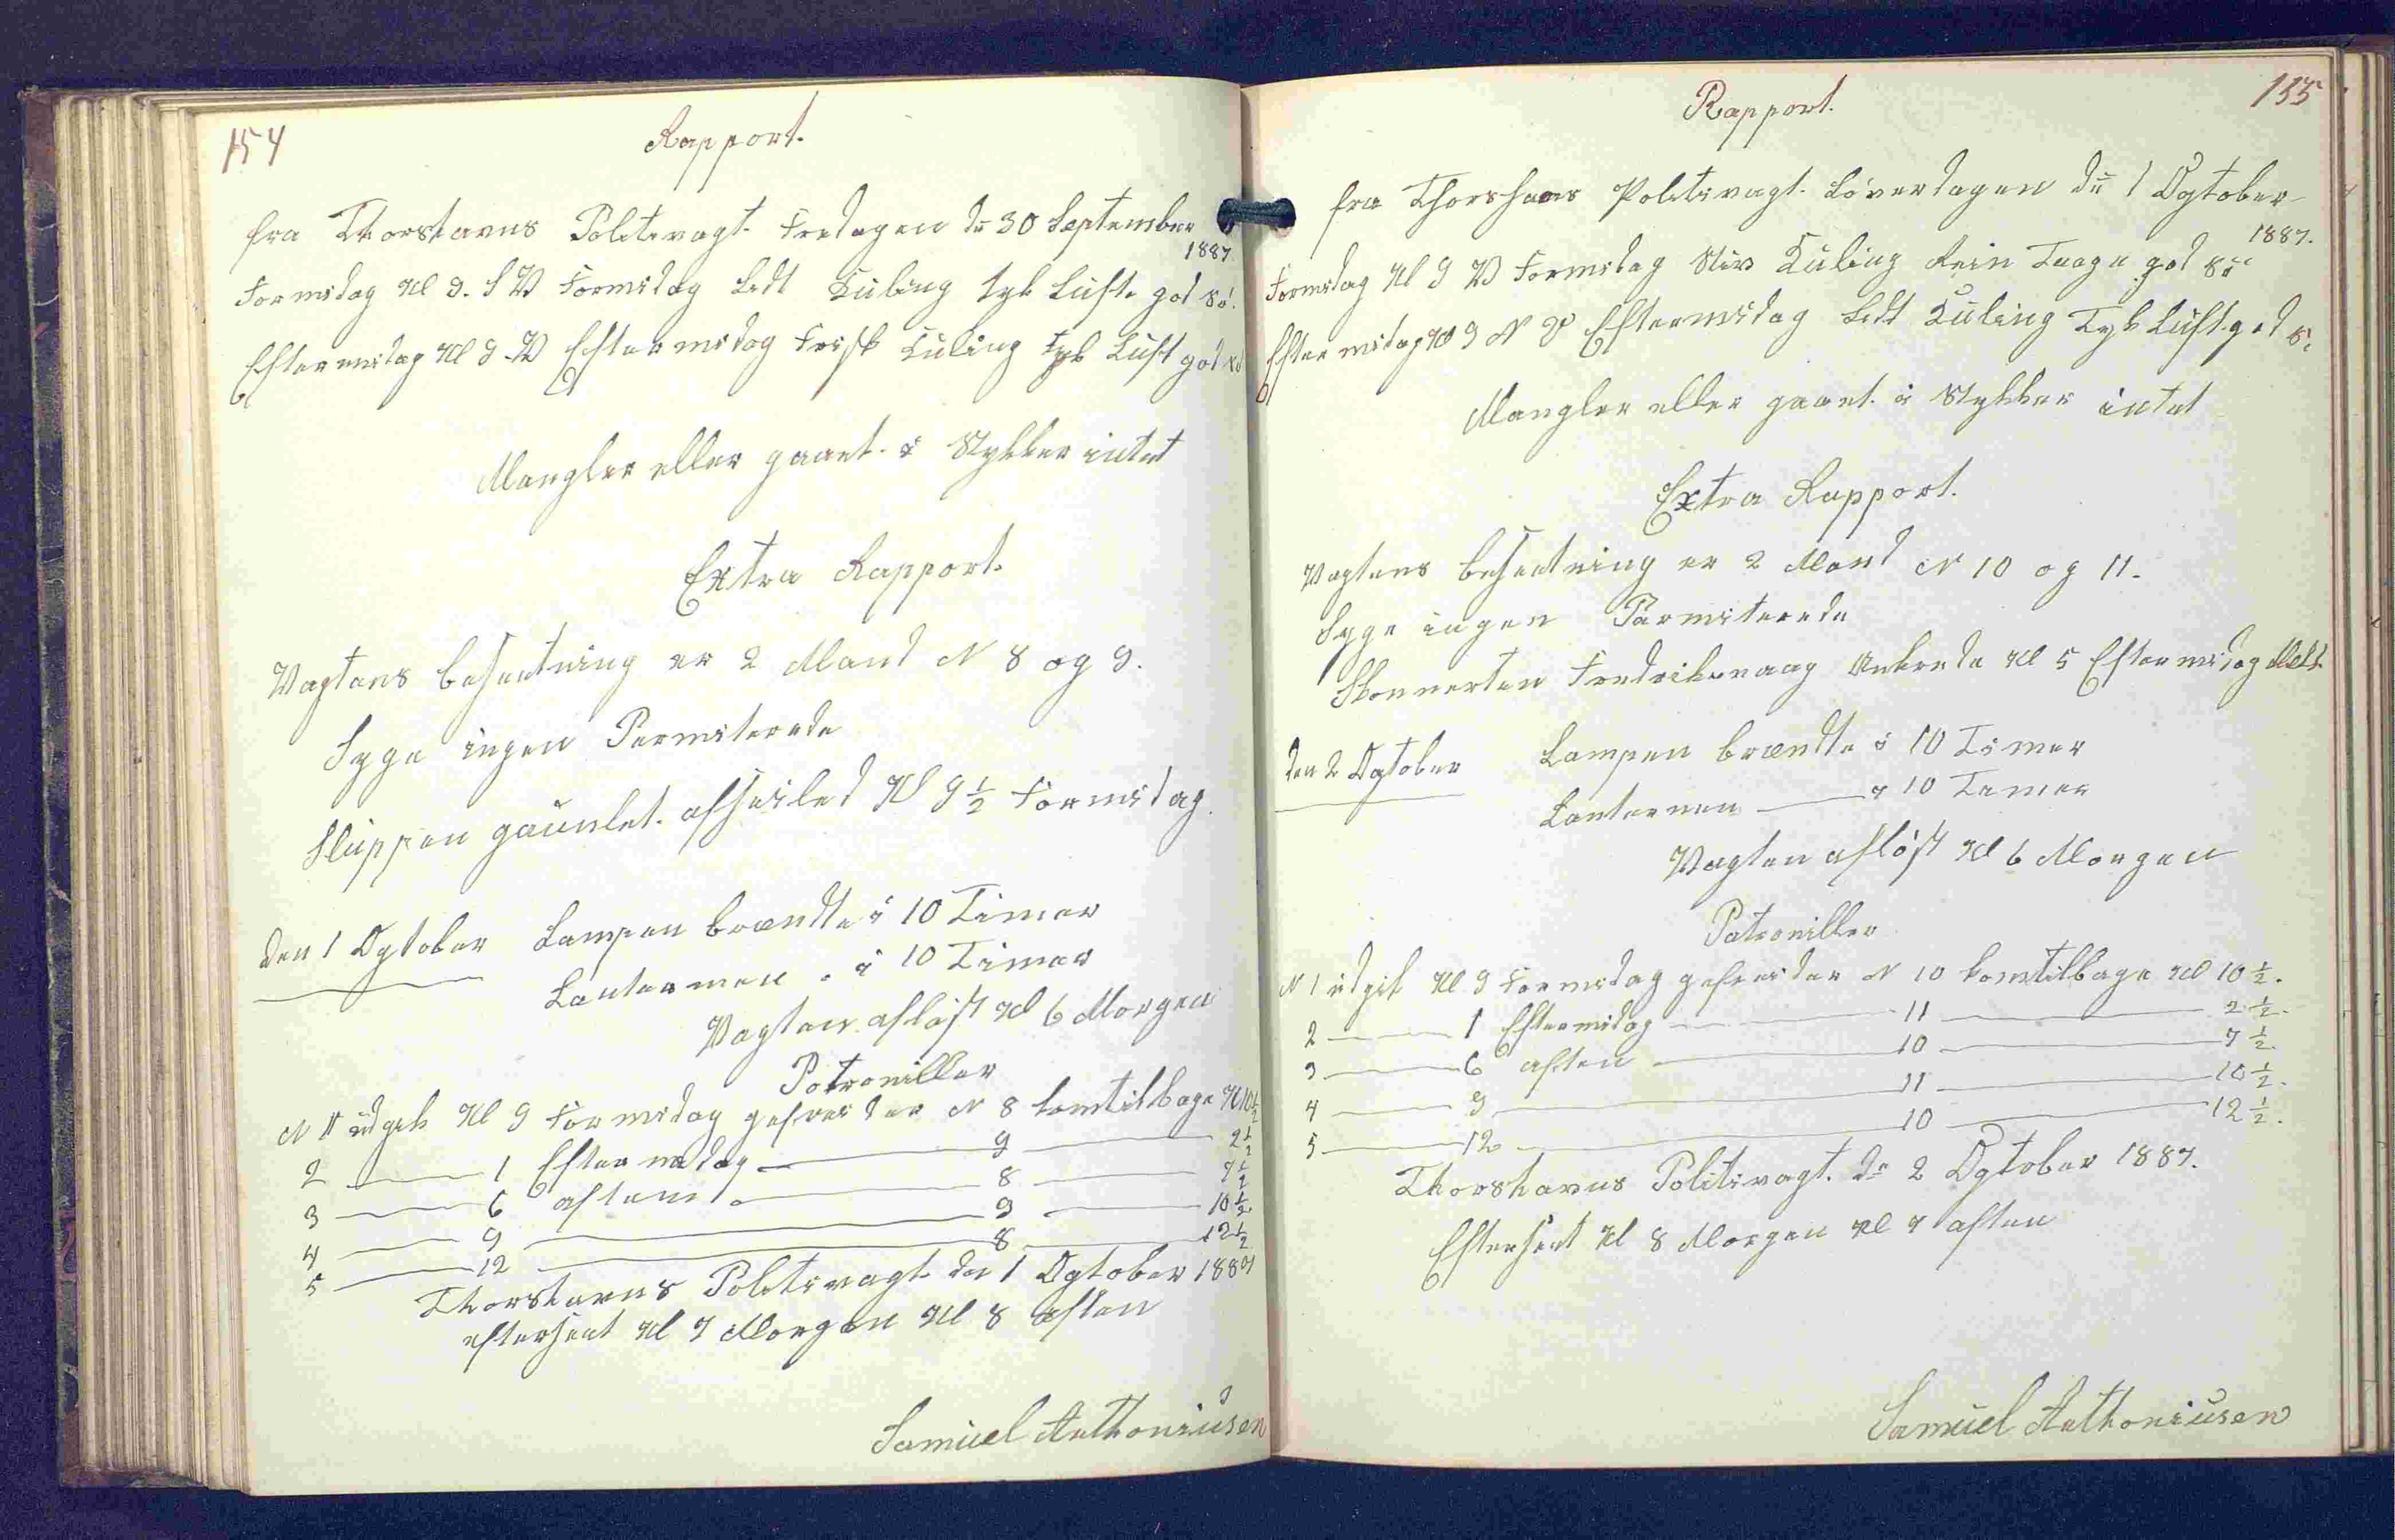 154
Rapport.
fra Thorshavns Politivagt. Fredagen dn 30 September
1887.
Formidag Kl 9. S V Formidag Lidt Kuling tyk Luft. god Sö.
Eftermidag Kl 9 V Eftermidag Frisk Kuling tyk Luft god Sö
Mangler eller gaaet. i Stykker intet
Extra Rapport.
Vagtens besætning er 2 Mand N 8 og 9.
Syge ingen Permiterede
Sluppen gauntlet. afseiled Kl 9 1/2 Formidag.
den 1 Ogtober Lampen brændte i 10 Timer
Lanternen . i 10 Timer
Vagten aflöst Kl 6 Morgen
Patroniller
N 1 udgik Kl 9 Formidag gefreider N 8 komtilbage Kl 10 1/2
2 — 1 Eftermidag — 9 — 2 1/2
3 — 6 aften — 8 — 7 1/2
4 — 9 — 9 — 10 1/2
5 — 12 — 8 — 12 1/2
Thorshavns Politivagt. den 1 Ogtober 1887
efterseet Kl 7 Morgen Kl 8 aften
Samuel Anthoniusen
155
Rapport.
fra Thorshavns Politivagt. Löverdagen dn 1 Ogtober
1887.
Formidag Kl 9 V Formidag Stiv Kuling Rein Taage god Sö
Eftermidag Kl 9 N V Eftermidag Lidt Kuling Tyk Luft god Sö
Mangler eller gaaet. i Stykker intet
Extra Rapport.
Vagtens besætning er 2 Mand N 10 og 11.
Syge ingen Parmiterede
Skonnerten Fredriksvaag Ankrede Kl 5 Eftermidag
den 2 Ogtober Lampen brændte i 10 Timer
Lanternen — i 10 Timer
Vagten aflöst Kl 6 Morgen
Patroniller
N 1 udgik Kl 9 Formidag gefreider N 10 komtilbage Kl 10 1/2.
2 — 1 Eftermidag — 11 — 2 1/2.
3 — 6 aften — 10 — 7 1/2.
4 — 9 — 11 — 10 1/2.
5 — 12 — 10 — 12 1/2.
Thorshavns Politivagt. dn 2 Ogtober 1887.
Efterseet Kl 8 Morgen Kl 7 aften
Samuel Anthoniusen